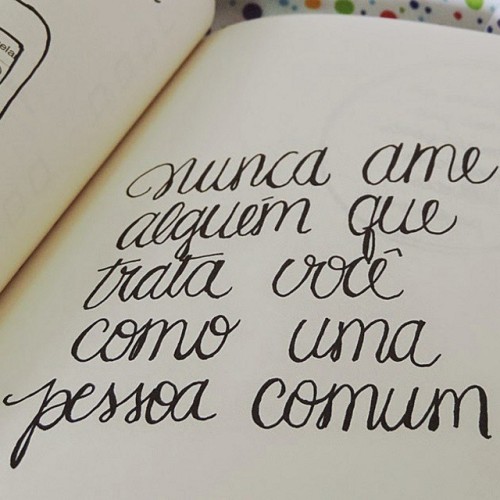 nunca ame
alguém que
trata você
como uma
pessoa comum